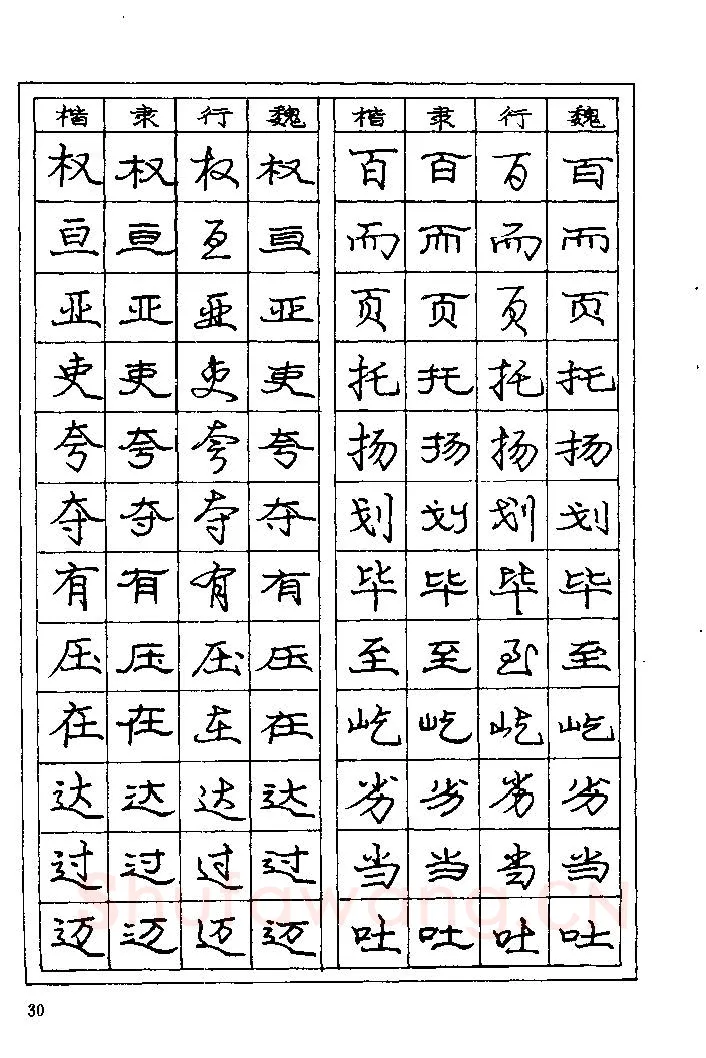 楷 隶 行 魏 楷 隶 行 魏
权 权 权 权 百 百 百 百
亘 亘 亘 亘 而 而 而 而
亚 亚 亚 亚 页 页 页 页
吏 吏 吏 吏 托 托 托 托
夸 夸 夸 夸 扬 扬 扬 扬
夺 夺 夺 夺 划 划 划 划
有 有 有 有 毕 毕 毕 毕
压 压 压 压 至 至 至 至
在 在 在 在 屹 屹 屹 屹
达 达 达 达 劣 劣 劣 劣
过 过 过 过 当 当 当 当
迈 迈 迈 迈 吐 吐 吐 吐
Shufawang.CN
30